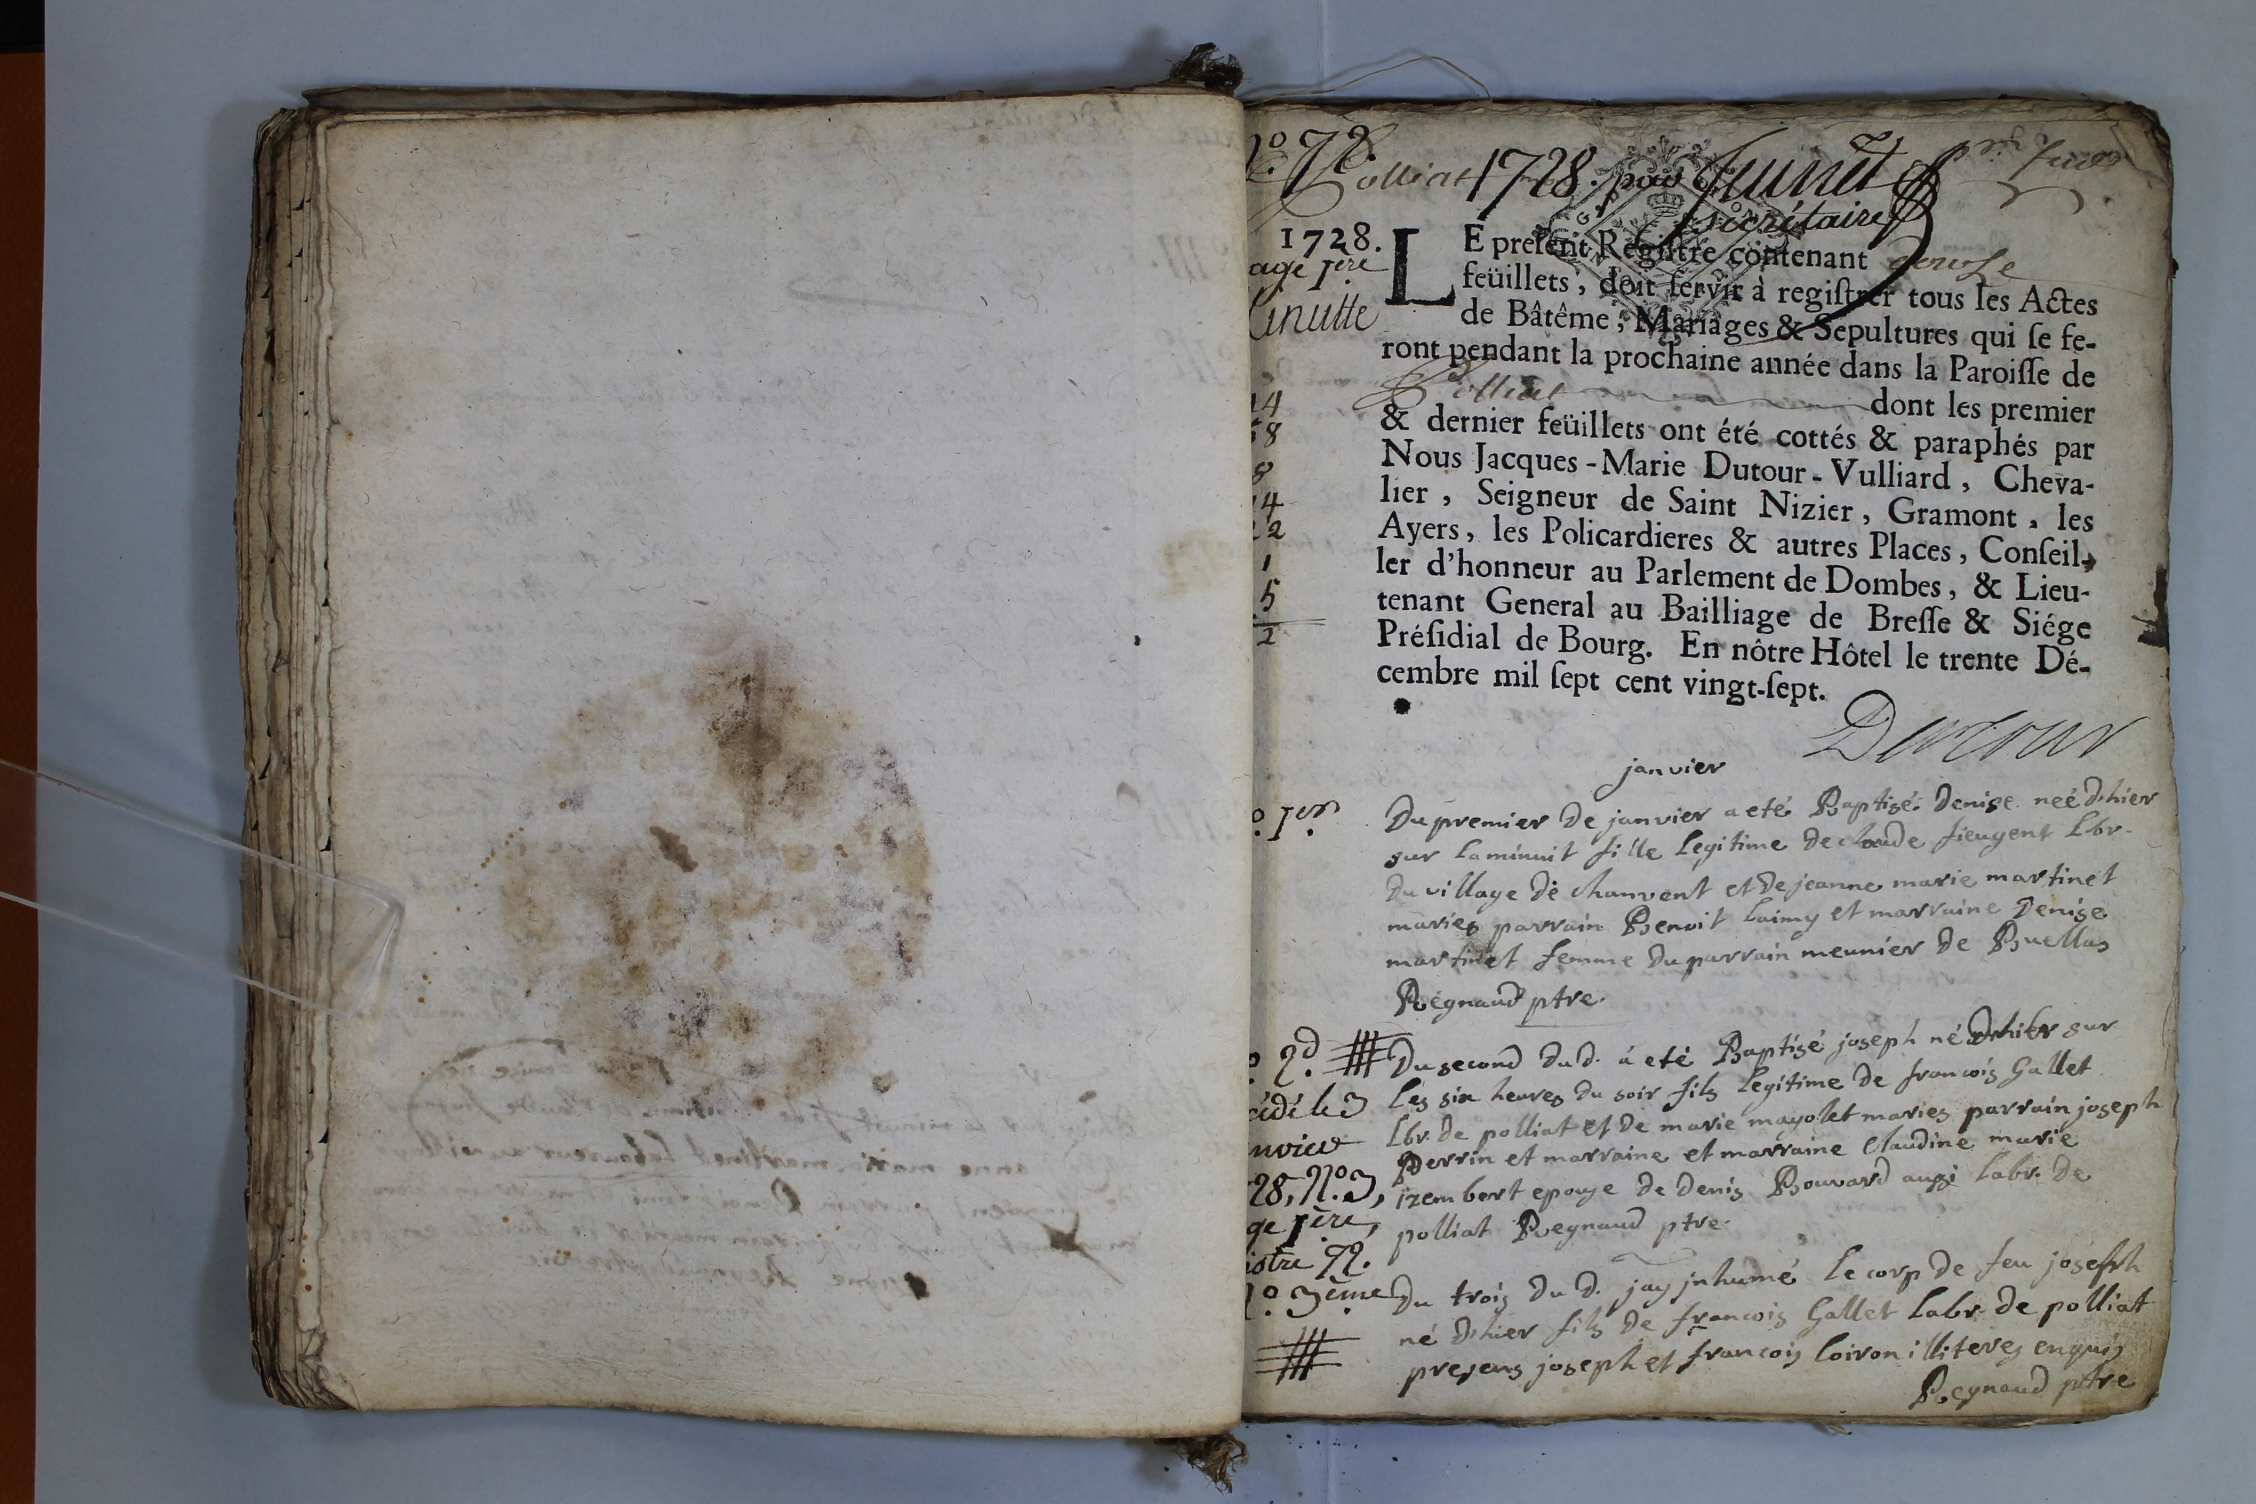 1728. pour
secrétaire
1728.
LE present Registre contenant douze
age 1ère
feüillets, doit servir à registrer tous les Actes
inutte
de Bâtême, Mariages & Sepultures qui se fe-
ront pendant la prochaine année dans la Paroisse de
Polliat dont les premier
& dernier feüillets ont été cottés & paraphés par
Nous Jacques-Marie Dutour-Vulliard, Cheva-
lier, Seigneur de Saint Nizier, Gramont, les
Ayers, les Policardieres & autres Places, Conseil-
ler d'honneur au Parlement de Dombes, & Lieu-
tenant General au Bailliage de Bresse & Siége
Présidial de Bourg. En nôtre Hôtel le trente Dé-
cembre mil sept cent vingt-sept.
Dutour
janvier
o. 1er.
Du premier de janvier a eté Baptisé Denise neé d'hier
sur la minuit fille legitime de claude fieugent Lbr.
du village de chanvent et de jeanne marie martinet
maries parrain Benoit Laimy et marraine Denise
martinet femme du parrain meunier de Buellas
Regnaud ptre.
o 2d.
Du second dud. á eté Baptisé joseph né d'hier sur
cédé le 3
les six heures du soir fils legitime de francois Gallet
nvier
Lbr. de polliat et de marie mayolet maries parrain joseph
Perrin et marraine et marraine claudine marie
28, No. 3,
izembert epouse de denis Bouvard aussi labr. de
ge 1ère,
polliat Regnaud ptre.
istre 72.
o. 3ème.
Du trois dud. jay jnhumé le corp de feu joseph
né d'hier fils de francois Gallet labr. de polliat
presens joseph et francois loiron illiteres enquis
Regnaud ptre